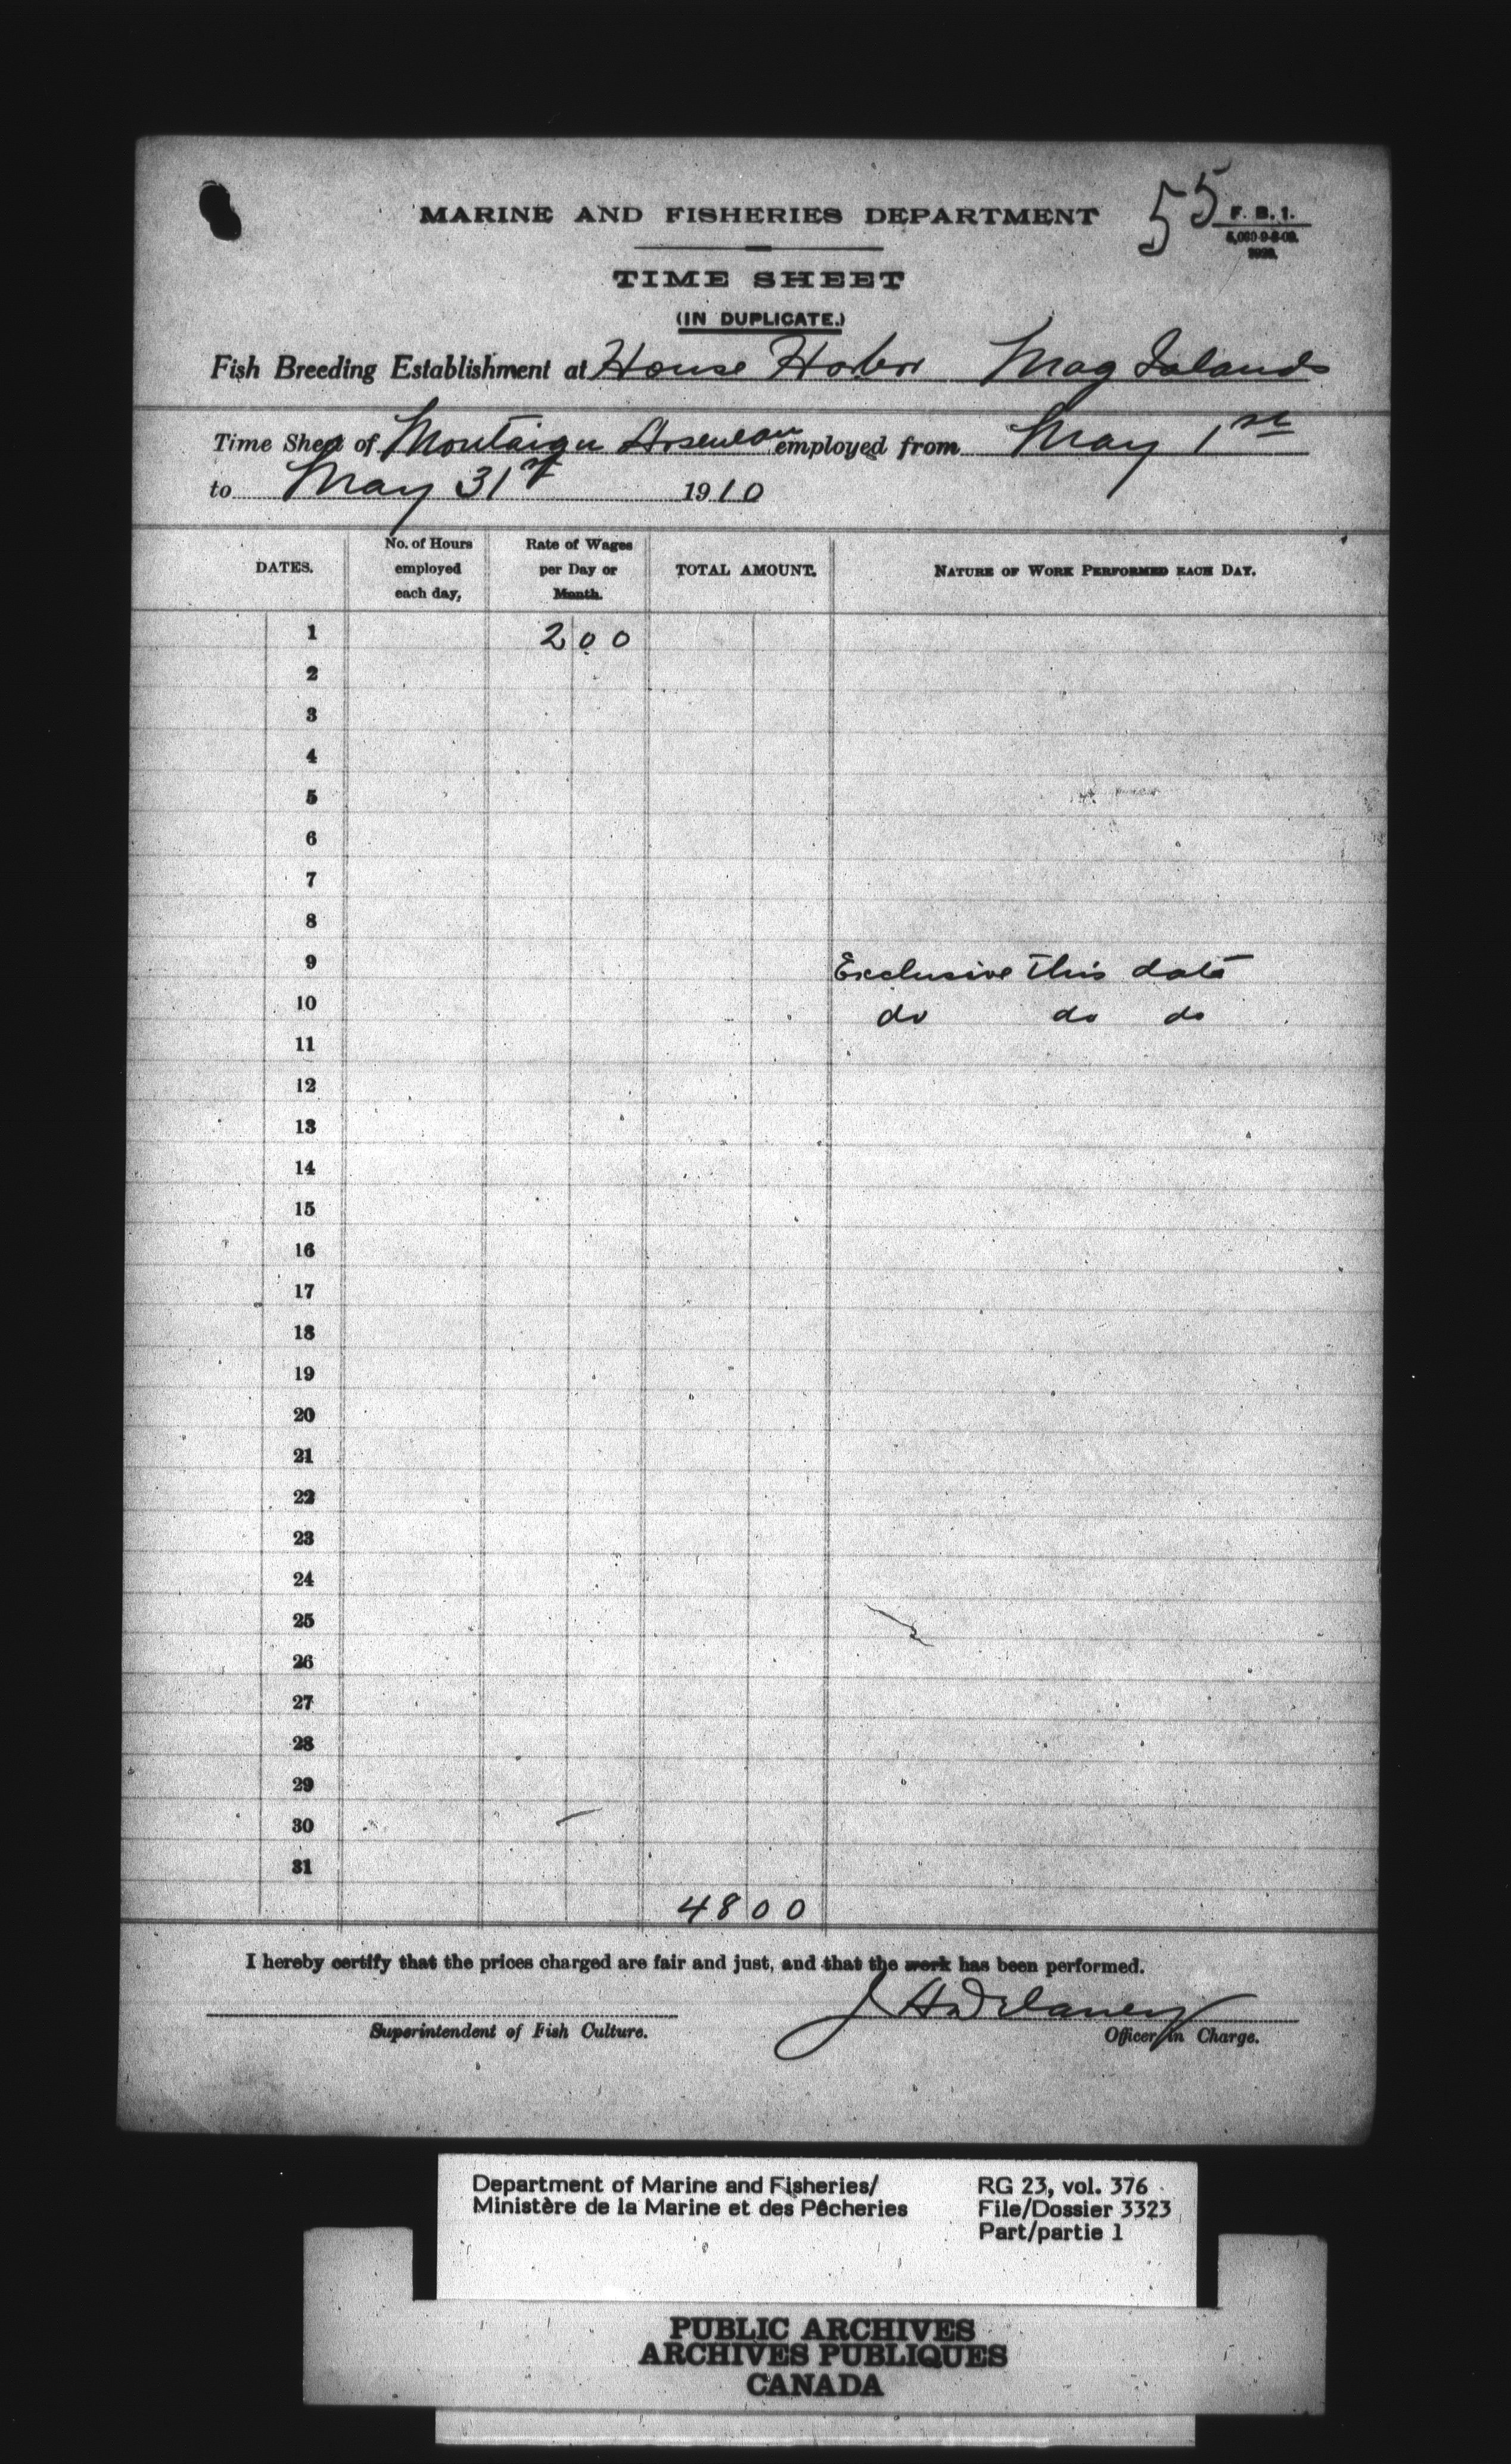 55
MARINE AND FISHERIES DEPARTMENT
F. B. 1.
TIME SHEET
(IN DUPLICATE.)
Fish Breeding Establishment at House Harbor Mag Islands
Time Sheet of Montaigu Arseneau employed from May 1st
to May 31st 1910
DATES.
No. of Hours employed each day,
Rate of Wages per Day or Month.
TOTAL AMOUNT.
NATURE OF WORK PERFORMED EACH DAY.
1 2 00
2
3
4
5
6
7
8
9 Exclusive this date
10 do do do
11
12
13
14
15
16
17
18
19
20
21
22
23
24
25
26
27
28
29
30
31
48 00
I hereby certify that the prices charged are fair and just, and that the work has been performed.
J H Delaney
Superintendent of Fish Culture. Officer in Charge.
Department of Marine and Fisheries/
Ministère de la Marine et des Pêcheries
RG 23, vol. 376
File/Dossier 3323
Part/partie 1
PUBLIC ARCHIVES
ARCHIVES PUBLIQUES
CANADA